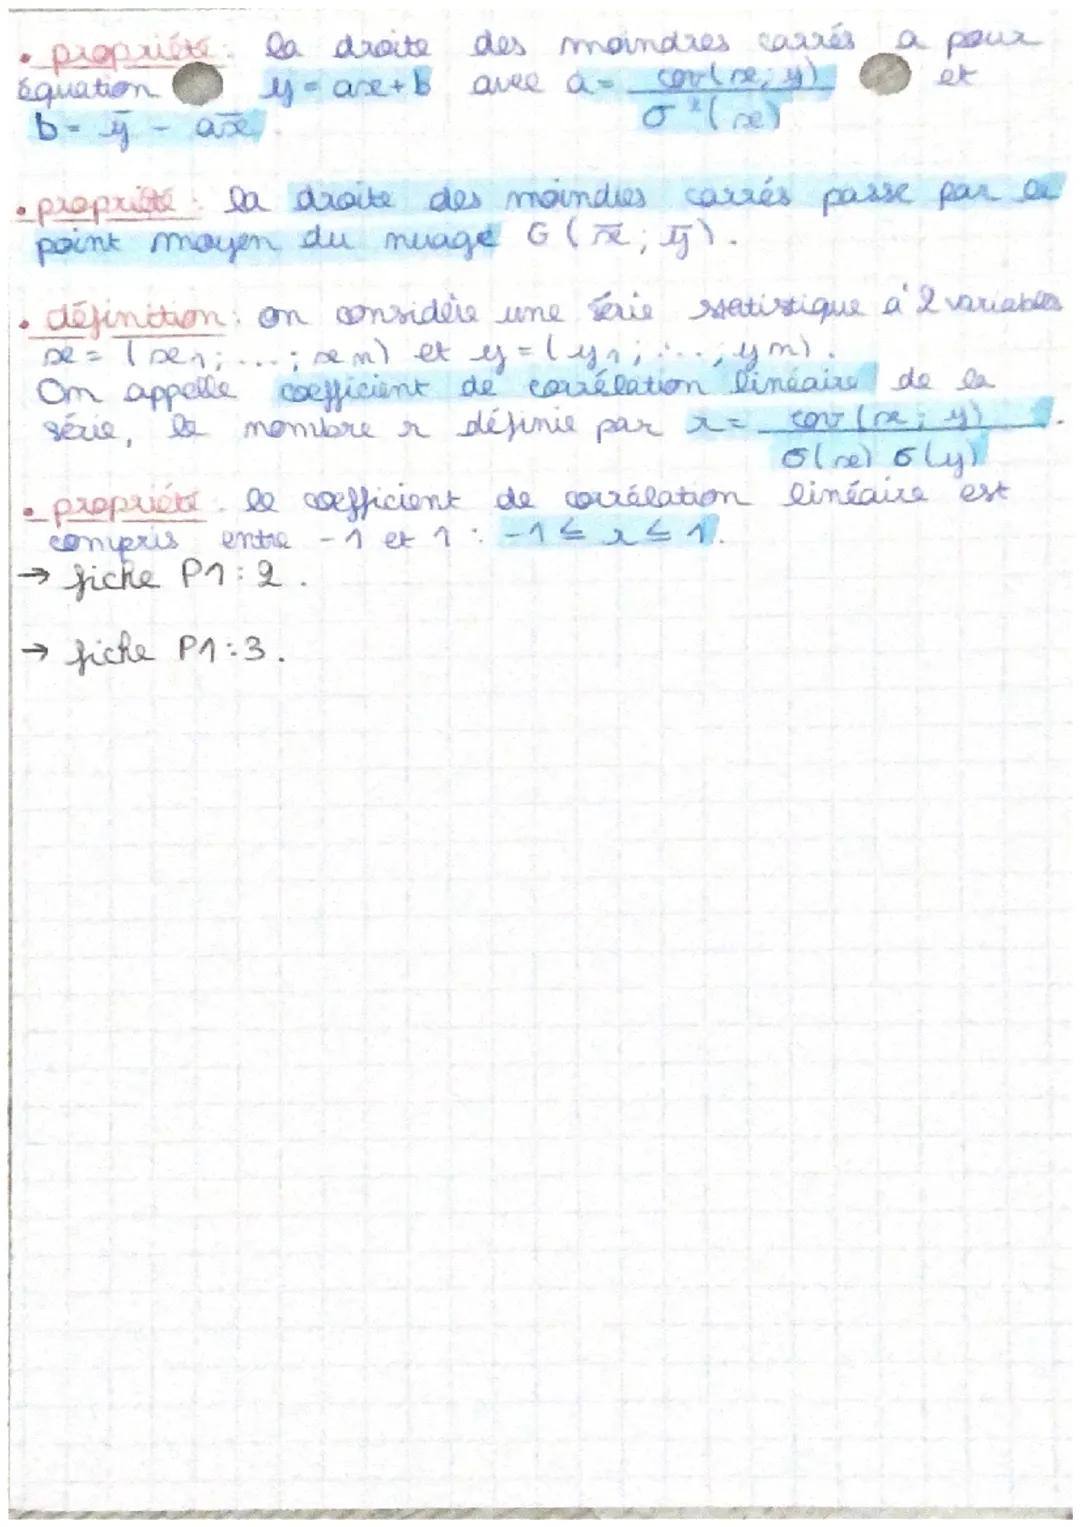 • propriété : la droite des moindres carrés a pour
équation y = ax+b avec a = cov(x; y) et
σ²(x)
b = ȳ - ax̄.
• propriété : la droite des moindres carrés passe par le
point moyen du nuage G (x̄; ȳ).
• définition : on considère une série statistique à 2 variables
x = (x1; ...; xn) et y = (y1; ...; yn).
On appelle coefficient de corrélation linéaire de la
série, le nombre r définie par r = cov(x; y).
σ(x) σ(y)
• propriété : le coefficient de corrélation linéaire est
compris entre -1 et 1 : -1 ≤ r ≤ 1.
→ fiche P1:2.
→ fiche P1:3.